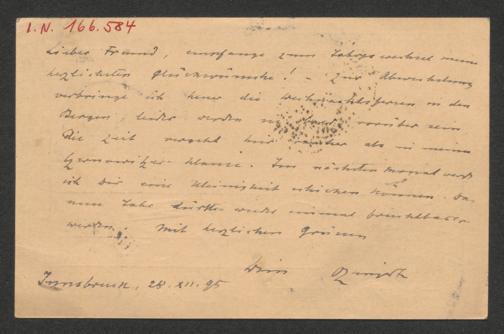 I.N. 166.584
Lieber Freund, empfange zum Jahreswechsel meine
herzlichsten Glückwünsche! – Zur Abwechslung
verbringe ich heuer die Weihnachtsferien in den
Bergen, leider werden sie vorüber sein
Die Zeit vergeht hier als in meiner
Czernowitzer Klause. Im nächsten Monat werde
ich Dir eine Kleinigkeit schicken können. Das
neue Jahr dürfte wieder einmal
werden. Mit herzlichen Grüssen
Dein
Innsbruck, 28. XII. 95